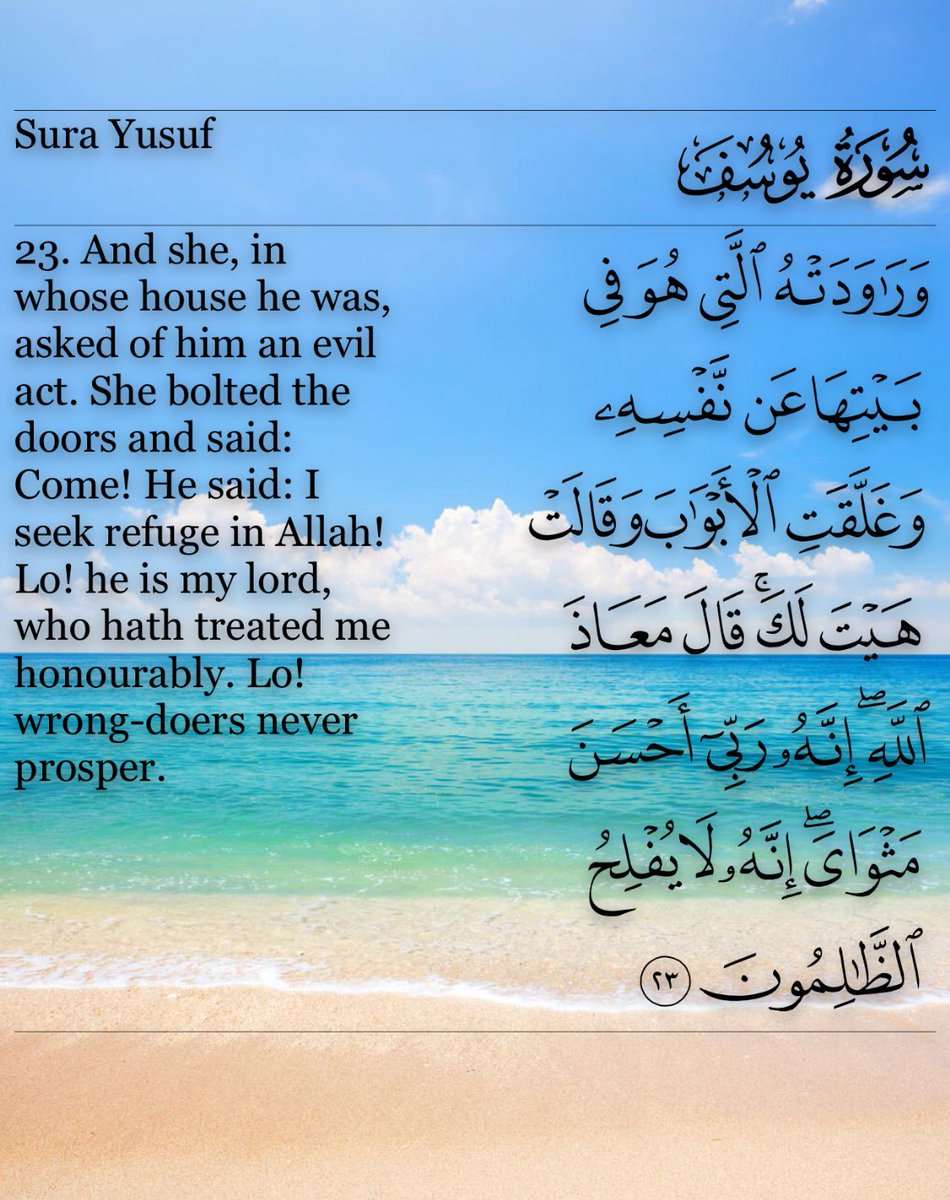 Sura Yusuf
سُورَةُ يُوسُفَ
23. And she, in
whose house he was,
asked of him an evil
act. She bolted the
doors and said:
Come! He said: I
seek refuge in Allah!
Lo! he is my lord,
who hath treated me
honourably. Lo!
wrong-doers never
prosper.
وَرَٰوَدَتۡهُ ٱلَّتِي هُوَ فِي
بَيۡتِهَا عَن نَّفۡسِهِۦ
وَغَلَّقَتِ ٱلۡأَبۡوَٰبَ وَقَالَتۡ
هَيۡتَ لَكَۚ قَالَ مَعَاذَ
ٱللَّهِۖ إِنَّهُۥ رَبِّيٓ أَحۡسَنَ
مَثۡوَايَۖ إِنَّهُۥ لَا يُفۡلِحُ
ٱلظَّٰلِمُونَ ٢٣